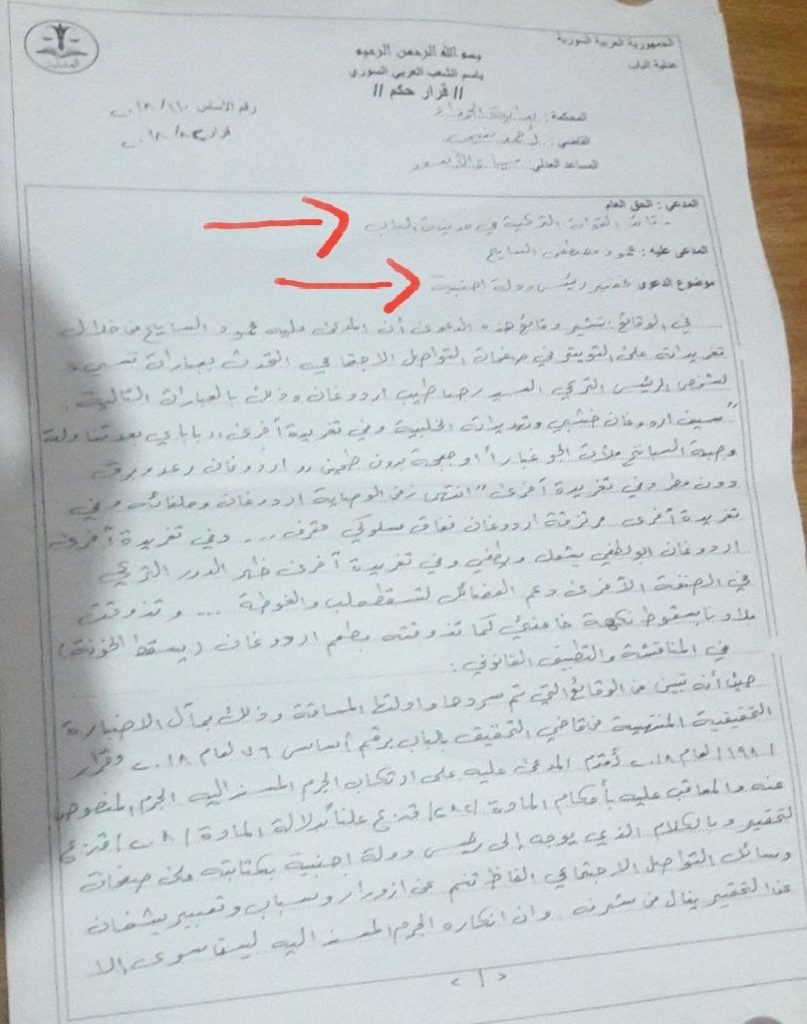 الجمهورية العربية السورية
عدلية الباب
بسم الله الرحمن الرحيم
باسم الشعب العربي السوري
// قرار حكم //
رقم الاساس ١١٠ / ٢٠١٨
قرار ٨٢ / ٢٠١٨
المحكمة: بداية الجزاء
القاضي:
المساعد العدلي:
المدعي: الحق العام
- قائد القوات التركية في مدينة الباب
المدعى عليه: محمود مصطفى السايح
موضوع الدعوى تحقير رئيس دولة اجنبية
في الوقائع: تشير وقائع هذه الدعوى أن المدعى عليه محمود السايح من خلال
تغريدات على التويتر في صفحات التواصل الاجتماعي التحدث بعبارات تسيء
لشخص الرئيس التركي السيد رجب طيب اردوغان وذلك بالعبارات التالية:
"سيف اردوغان خشبي وتهديدات الخلبية وفي تغريدة أخرى اوباباي بعد تناوله
وجبة السبانخ ملأت الجو غباراً وجعجعة بدون طحين اردوغان رعد وبرق
دون مطر وفي تغريدة أخرى "انتهى زمن الوصاية اردوغان وملفاته وفي
تغريدة أخرى مرتزقة اردوغان نفاق سلوكي مقرف ... وفي تغريدة أخرى
اردوغان ابو لطفي يشعل ويطفي وفي تغريدة أخرى ظهر الدور التركي
في الصفقة الأخرى دعم الفصائل لتسقط حلب والغوطة .... وتذوقت
بلادنا بسقوط نكهة خامنئي كما تذوقته بطعم اردوغان (يسقط الخونة)
في المناقشة والتطبيق القانوني:
حيث أنه تبين من الوقائع التي تم سردها وادلتها المساقة وذلك بمآل الاضبارة
التحقيقية المنتهية من قاضي التحقيق بالباب برقم أساس ٧٦ لعام ٢٠١٨ وقرار
/١٩٨/ لعام ٢٠١٨ أقدم المدعى عليه على ارتكاب الجرم المسند اليه الجرم المنصوص
عنه والمعاقب عليه بأحكام المادة /٢٨٢/ ق.ع علناً بدلالة المادة /٢٠٨/ ق.ع
لتحقير وبالكلام الذي يوجه إلى رئيس دولة اجنبية بكتابته على صفحات
وسائل التواصل الاجتماعي الفاظ تنم عن ازورار وسباب وتعبير يشفان
عن التحقير ينال من شرفه. وان انكاره الجرم المسند اليه ليست سوى الا
< ١ >